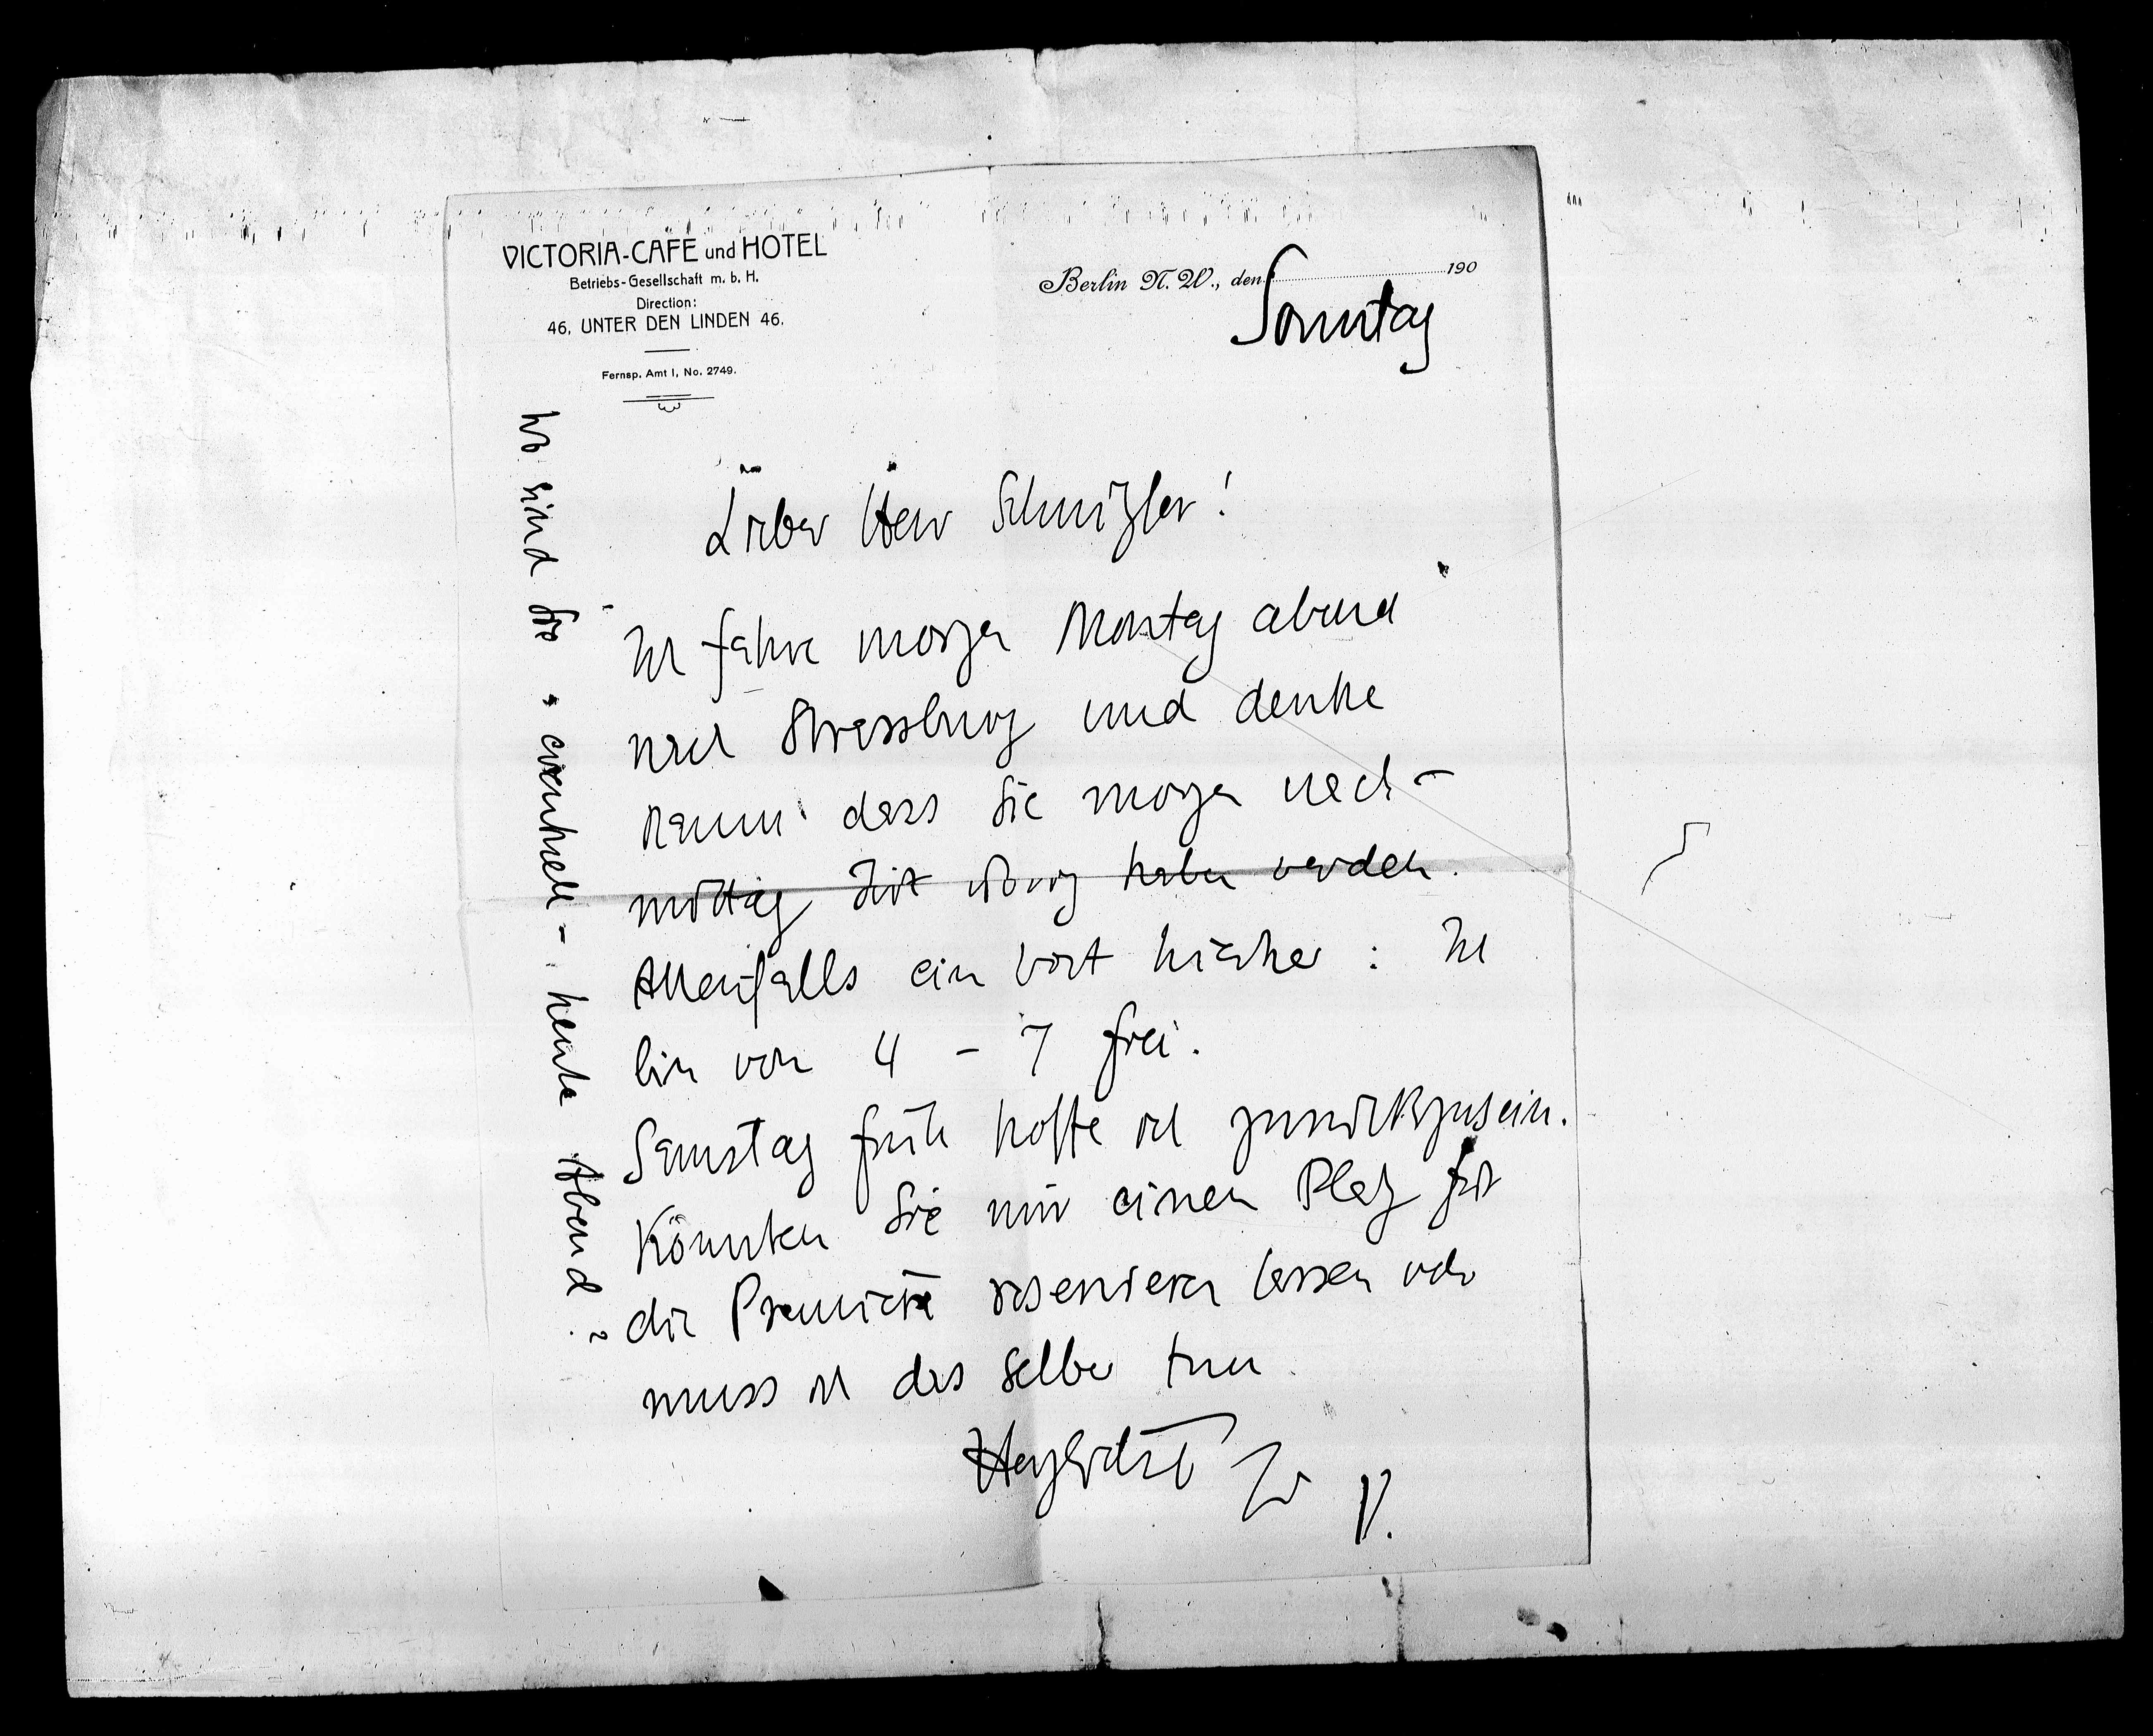 VICTORIA-CAFE und HOTEL
Betriebs-Gesellschaft m. b. H.
Direction:
46, UNTER DEN LINDEN 46.
Fernsp. Amt I, No. 2749.
Berlin N. W., den 190
Sonntag
Lieber Herr Schnitzler!
Ich fahre morgen Montag abend
nach Strassburg und denke
kaum dass Sie morgen nach-
mittag Zeit übrig haben werden.
Allenfalls ein Wort hieher: Ich
bin von 4 - 7 frei.
Samstag früh hoffe ich zurückzusein.
Könnten Sie mir einen Platz für
die Premiere reservieren lassen oder
muss ich das selber tun
Herzlichst Ihr P.
Wo sind Sie eventuell - heute Abend?